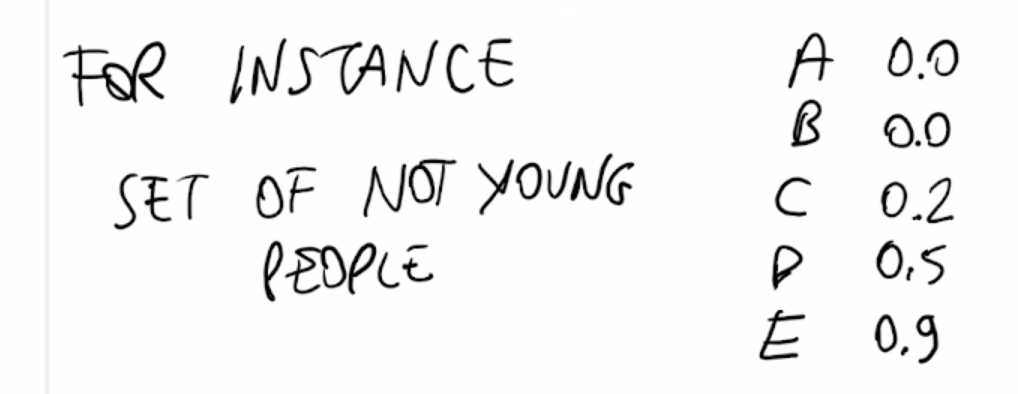 FOR INSTANCE
SET OF NOT YOUNG
PEOPLE
A 0.0
B 0.0
C 0.2
D 0.5
E 0.9